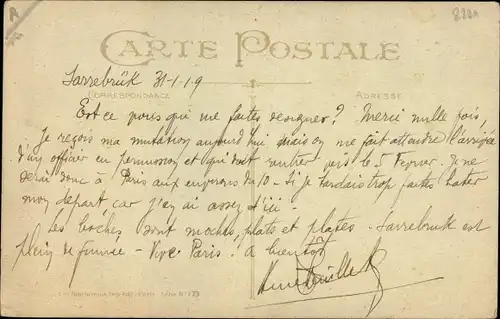 8221
CARTE POSTALE
Sarrebrük 31-1-19
CORRESPONDANCE ADRESSE
Est ce vous qui me faites désigner ? Merci mille fois,
je reçois ma mutation aujourd'hui mais on me fait attendre l'arrivée
d'un officier en permission et qui doit rentrer vers le 5 Février. Je ne
serai donc à Paris aux environs du 10 - Si je tardais trop faites hater
mon départ car j'en ai assez d'ici -
Les boches sont moches, plats et plates. Sarrebruk est
plein de fumée - Vive Paris ! à bientôt